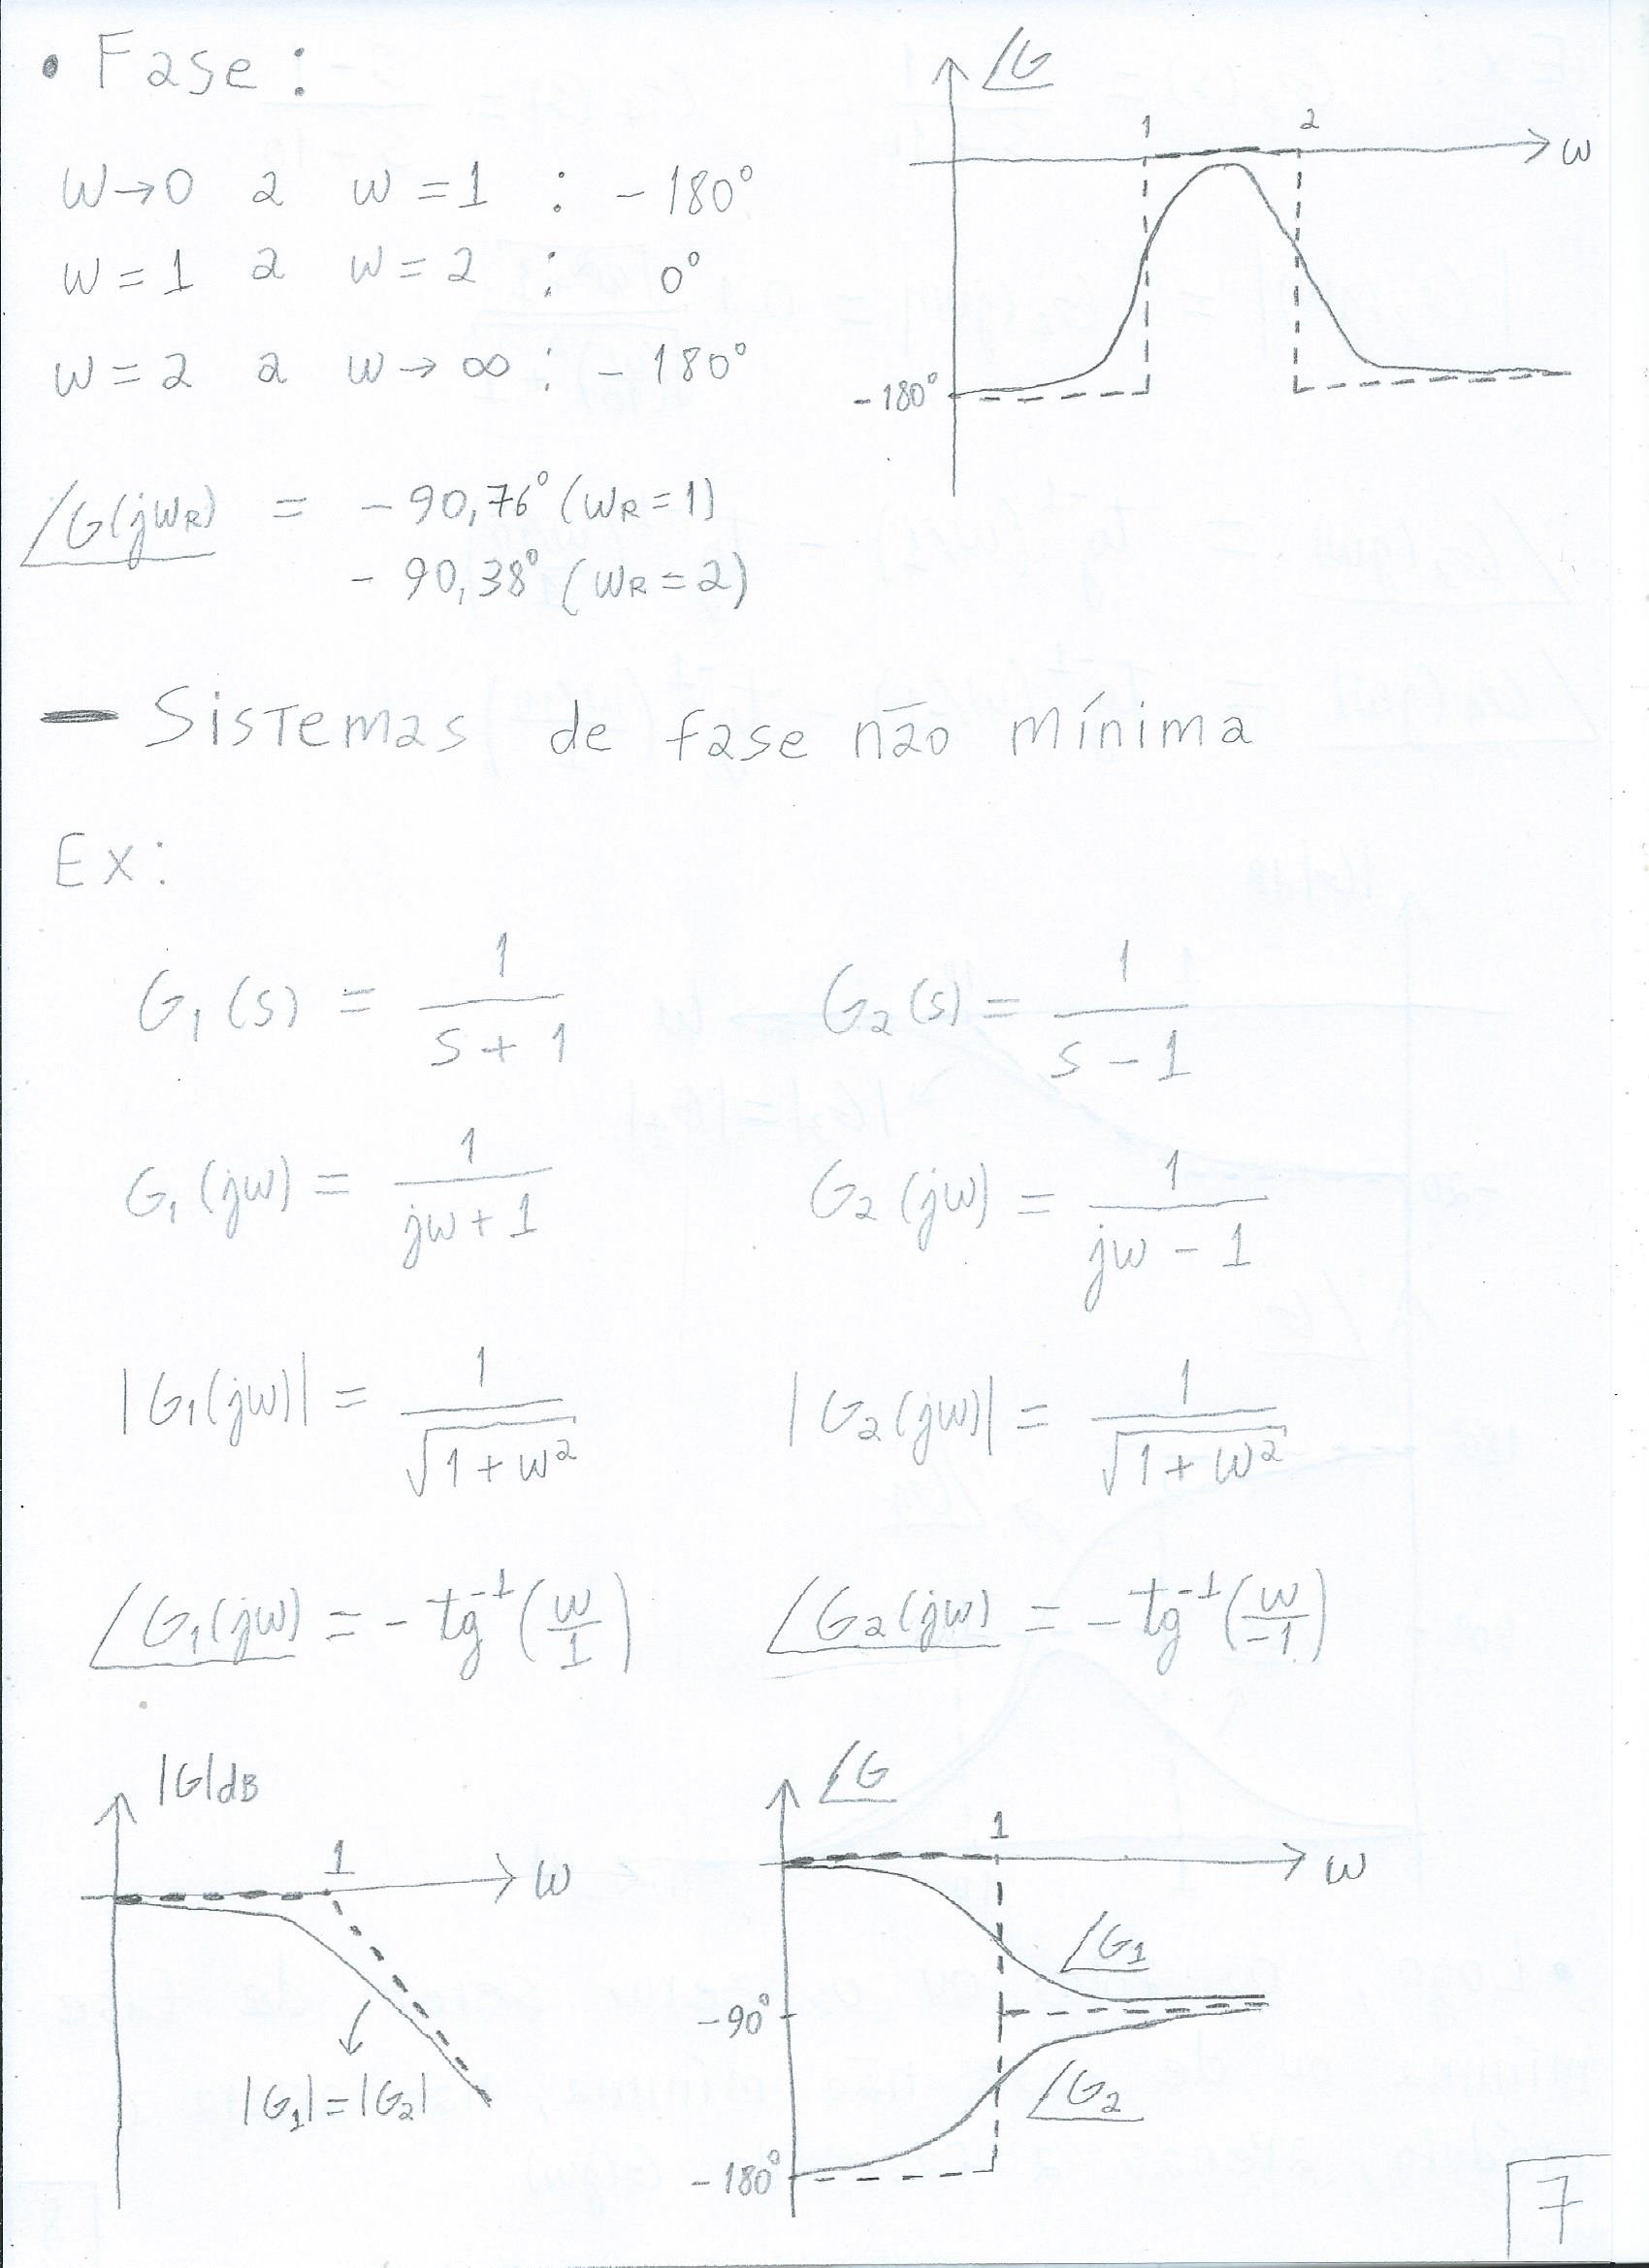 • Fase:
∠G
1 2
w
w→0 a w = 1 : - 180°
w = 1 a w = 2 : 0°
w = 2 a w → ∞ : - 180°
- 180°
∠G(jwR) = - 90,76° (wR = 1)
- 90,38° (wR = 2)
- Sistemas de fase não mínima
Ex:
G1(s) = 1/(s + 1) G2(s) = 1/(s - 1)
G1(jw) = 1/(jw + 1) G2(jw) = 1/(jw - 1)
|G1(jw)| = 1/√(1 + w²) |G2(jw)| = 1/√(1 + w²)
∠G1(jw) = - tg⁻¹(w/1) ∠G2(jw) = - tg⁻¹(w/-1)
|G|dB
1
w
|G1| = |G2|
∠G
1
w
∠G1
- 90°
∠G2
- 180°
7